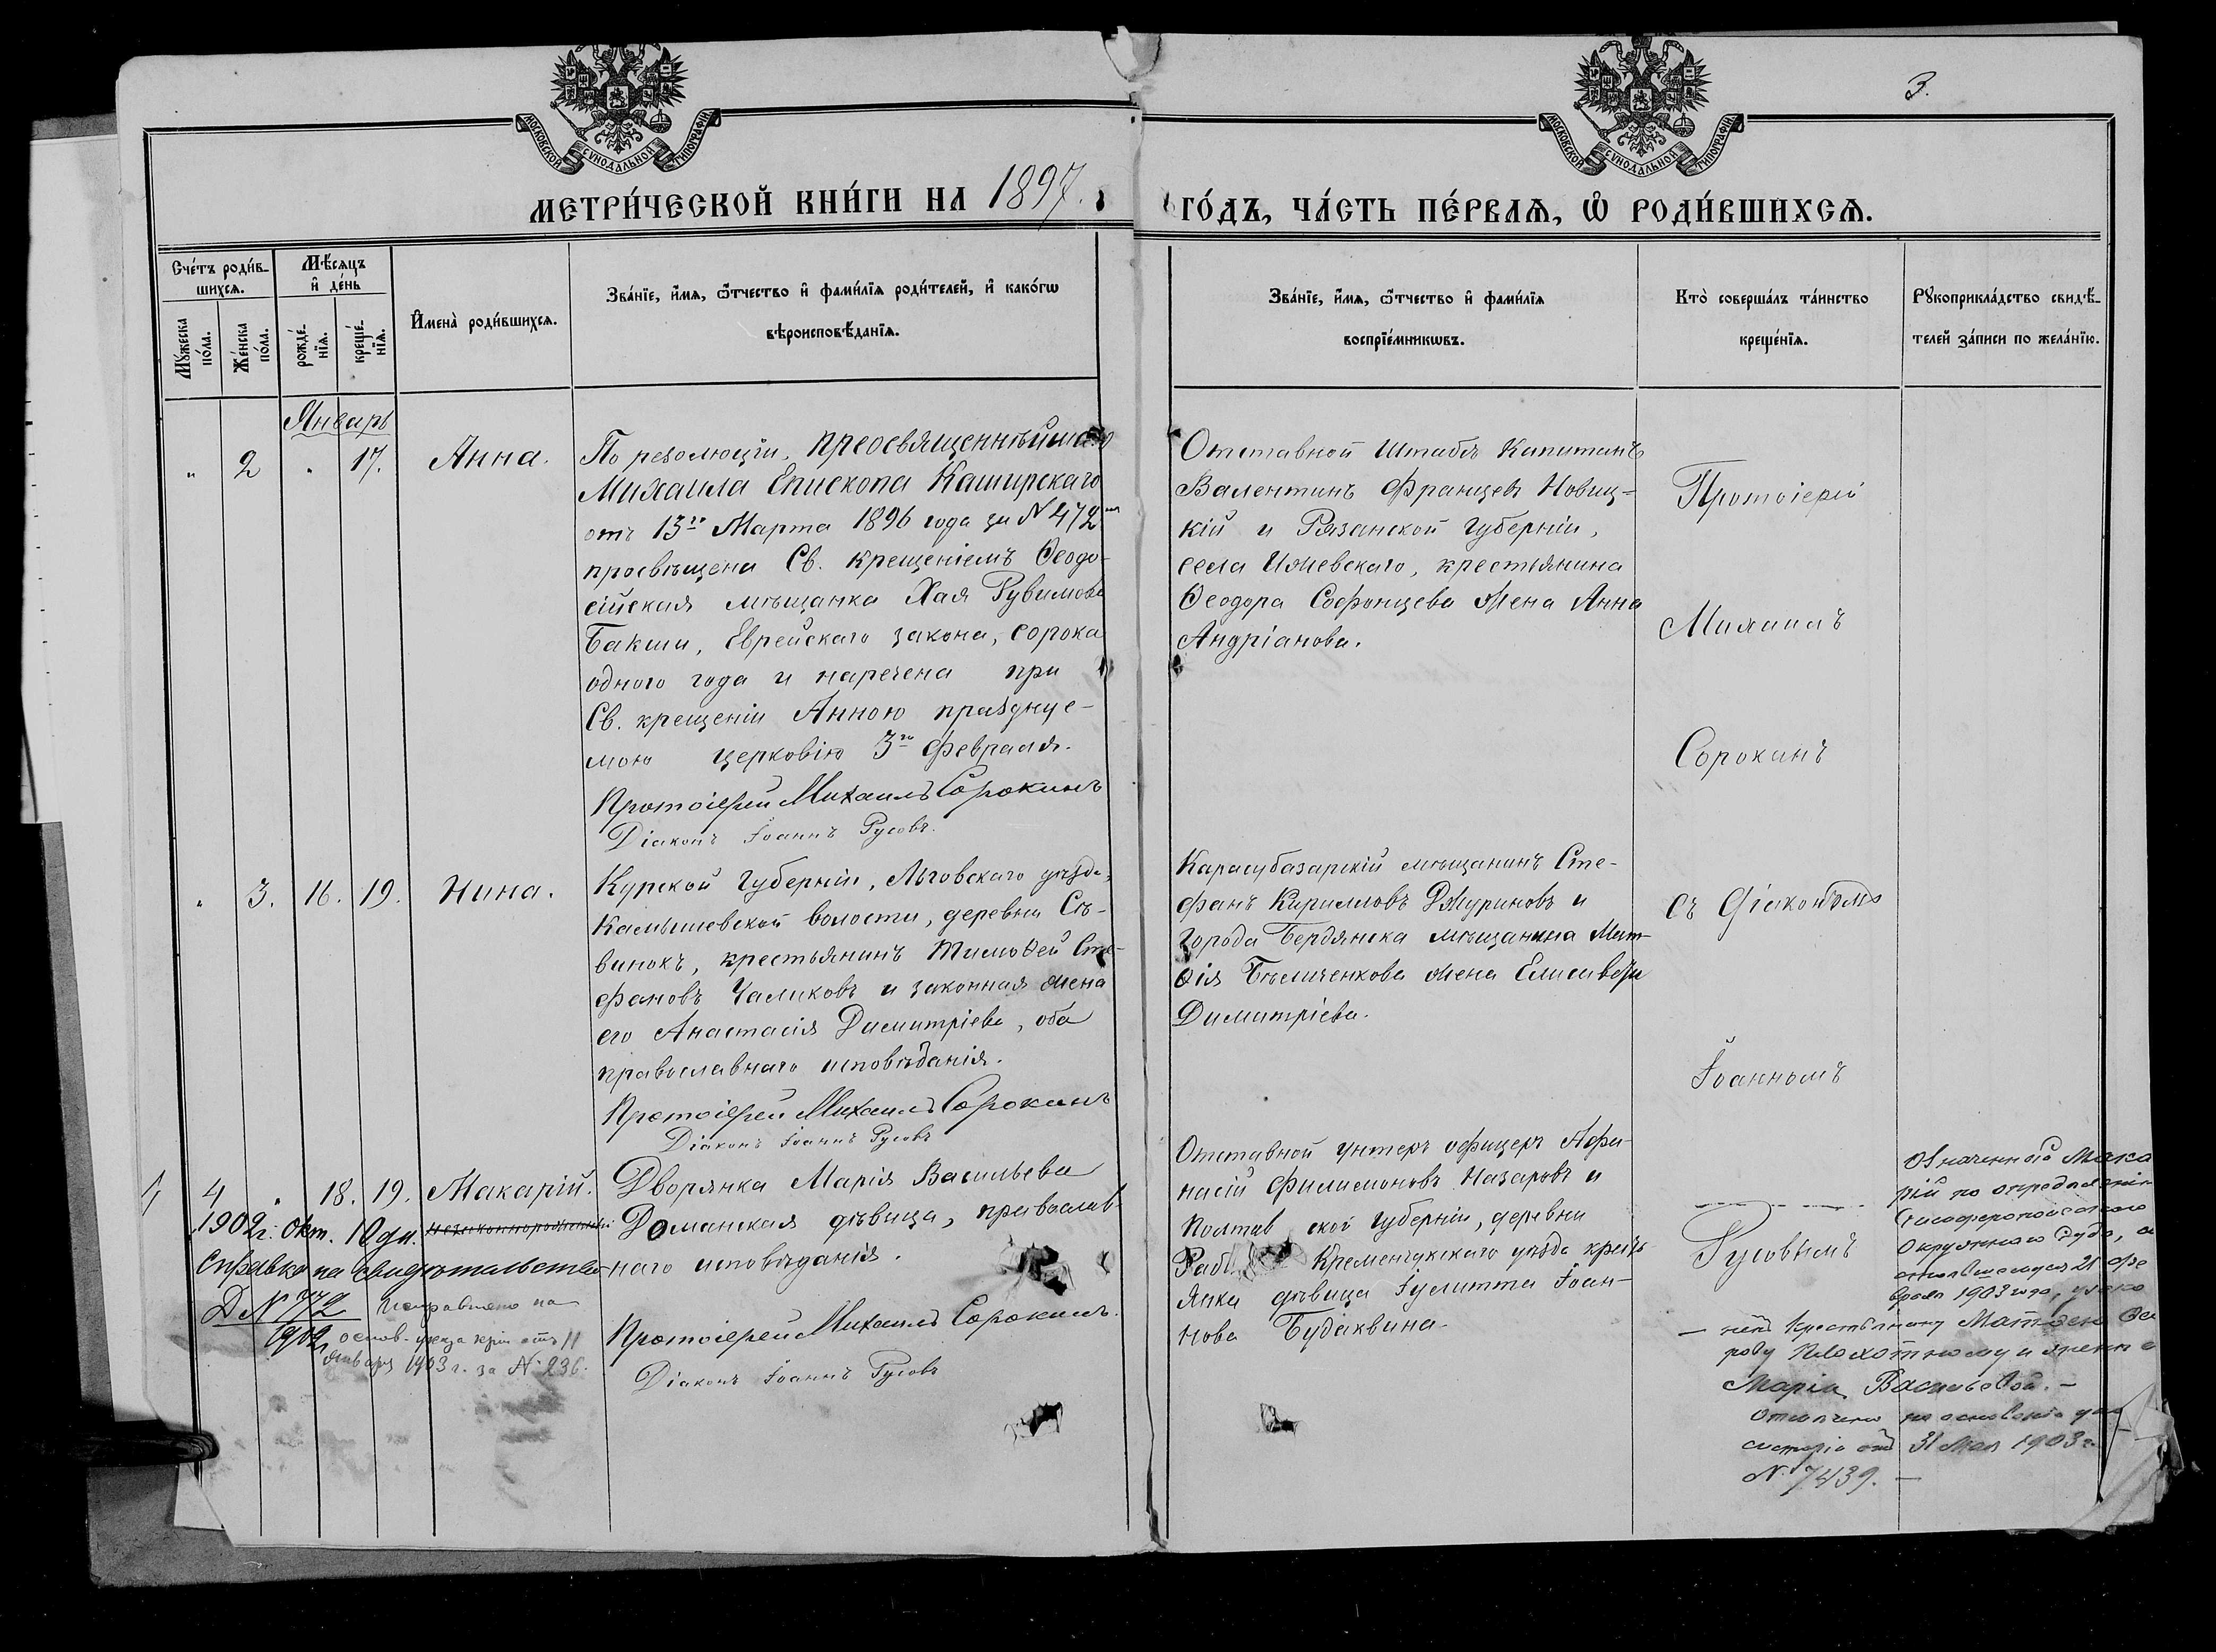 3.
МОСКОВСКОЙ СѴНОДАЛЬНОЙ ТИПОГРАФІИ
МОСКОВСКОЙ СѴНОДАЛЬНОЙ ТИПОГРАФІИ
МЕТРИ́ЧЕСКОЙ КНИ́ГИ НА 1897.
ГО́ДЪ, ЧА́СТЬ ПЕ́РВАѦ, Ѽ РОДИ́ВШИХСѦ.
Сче́тъ роди́в-
шихсѧ.
Мѣ́сяцъ
и҆ де́нь
Мꙋ́жеска
по́ла.
Же́нска
по́ла.
рожде́-
нїѧ.
креще́-
нїѧ.
И҆мена̀ роди́вшихсѧ.
Зва́нїе, и҆́мѧ, ѻ҆́тчество и҆ фами́лїѧ роди́телей, и҆ како́гѡ
вѣроисповѣ́данїѧ.
Зва́нїе, и҆́мѧ, ѻ҆́тчество и҆ фами́лїѧ
воспрїе́мникѡвъ.
Кто̀ соверша́лъ та́инство
креще́нїѧ.
Рꙋкоприкла́дство свидѣ́-
телей за́писи по жела́нїю.
Январь
" 2 " 17. Анна.
По резолюціи, преосвященнѣйшаго
Михаила Епископа Каширскаго
отъ 13го Марта 1896 года за № 472
просвѣщена Св. крещеніемъ Ѳеодо-
сійская мѣщанка Хая Рувимова
Бакши, Еврейскаго закона, сорока
одного года и наречена при
Св. крещеніи Анною празднуе-
мою церковію 3го Февраля.
Протоіерей Михаилъ Сорокинъ
Діаконъ Іоаннъ Русовъ.
Отставной Штабсъ Капитанъ
Валентинъ Францевъ Новиц-
кій и Рязанской губерніи,
села Ижевскаго, крестьянина
Ѳеодора Софонцева жена Анна
Андріанова.
Протоіерей
Михаилъ
Сорокинъ
" 3. 16. 19. Нина.
Курской губерніи, Льговскаго уѣзда,
Камышевской волости, деревни Сѣ-
винокъ, крестьянинъ Тимоѳей Сте-
фановъ Чаликовъ и законная жена
его Анастасія Димитріева, оба
православнаго исповѣданія.
Протоіерей Михаилъ Сорокинъ
Діаконъ Іоаннъ Русовъ
Карасубазарскій мѣщанинъ Сте-
фанъ Кирилловъ Джуриновъ и
города Бердянска мѣщанина Мат-
ѳія Бѣличенкова жена Елисавета
Димитріева.
съ Діакономъ
Іоанномъ
4 " 18. 19. Макарій.
незаконнорожденный
Дворянка Марія Васильева
Доманская дѣвица, православ-
наго исповѣданія.
Протоіерей Михаилъ Сорокинъ.
Діаконъ Іоаннъ Русовъ
1902 г. Окт. 10 дн.
Справка на свидѣтельство
Д № 772
1902
Исправлено на
основ. указа отъ 11
января 1903 г. за № 236.
Отставной унтеръ офицеръ Аѳа-
насій Филимоновъ Назаровъ и
Полтав ской губерніи, деревни
Кременчукскаго уѣзда кресть
янка дѣвица Іулитта Іоан-
нова Будаквина.
Русовымъ
Означенный Мака
рій по опредѣленію
Симферопольскаго
Окружного Суда, со
стоявшемуся 21 фе
враля 1903 года, усыно
ленъ крестьяниномъ
и женой
Маріей Васильевой. —
31 Мая 1903 г.
№ 7439. —